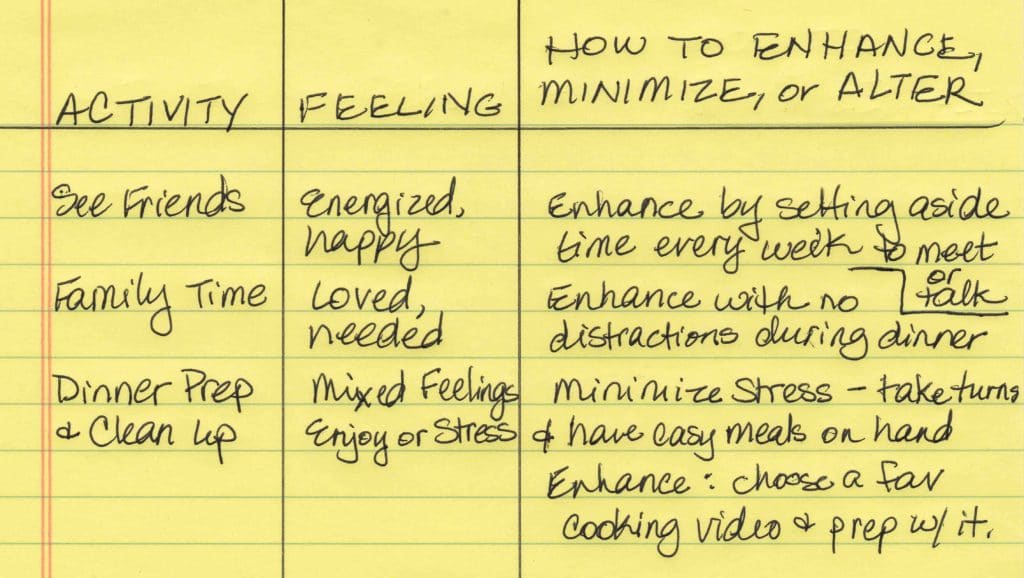 ACTIVITY
FEELING
HOW TO ENHANCE,
MINIMIZE, or ALTER
See Friends
Energized,
happy
Enhance by setting aside
time every week to meet
or
talk
Family Time
Loved,
needed
Enhance with no
distractions during dinner
Dinner Prep
& Clean Up
Mixed Feelings
Enjoy or Stress
Minimize Stress – take turns
& have easy meals on hand
Enhance: choose a fav
cooking video & prep w/ it.